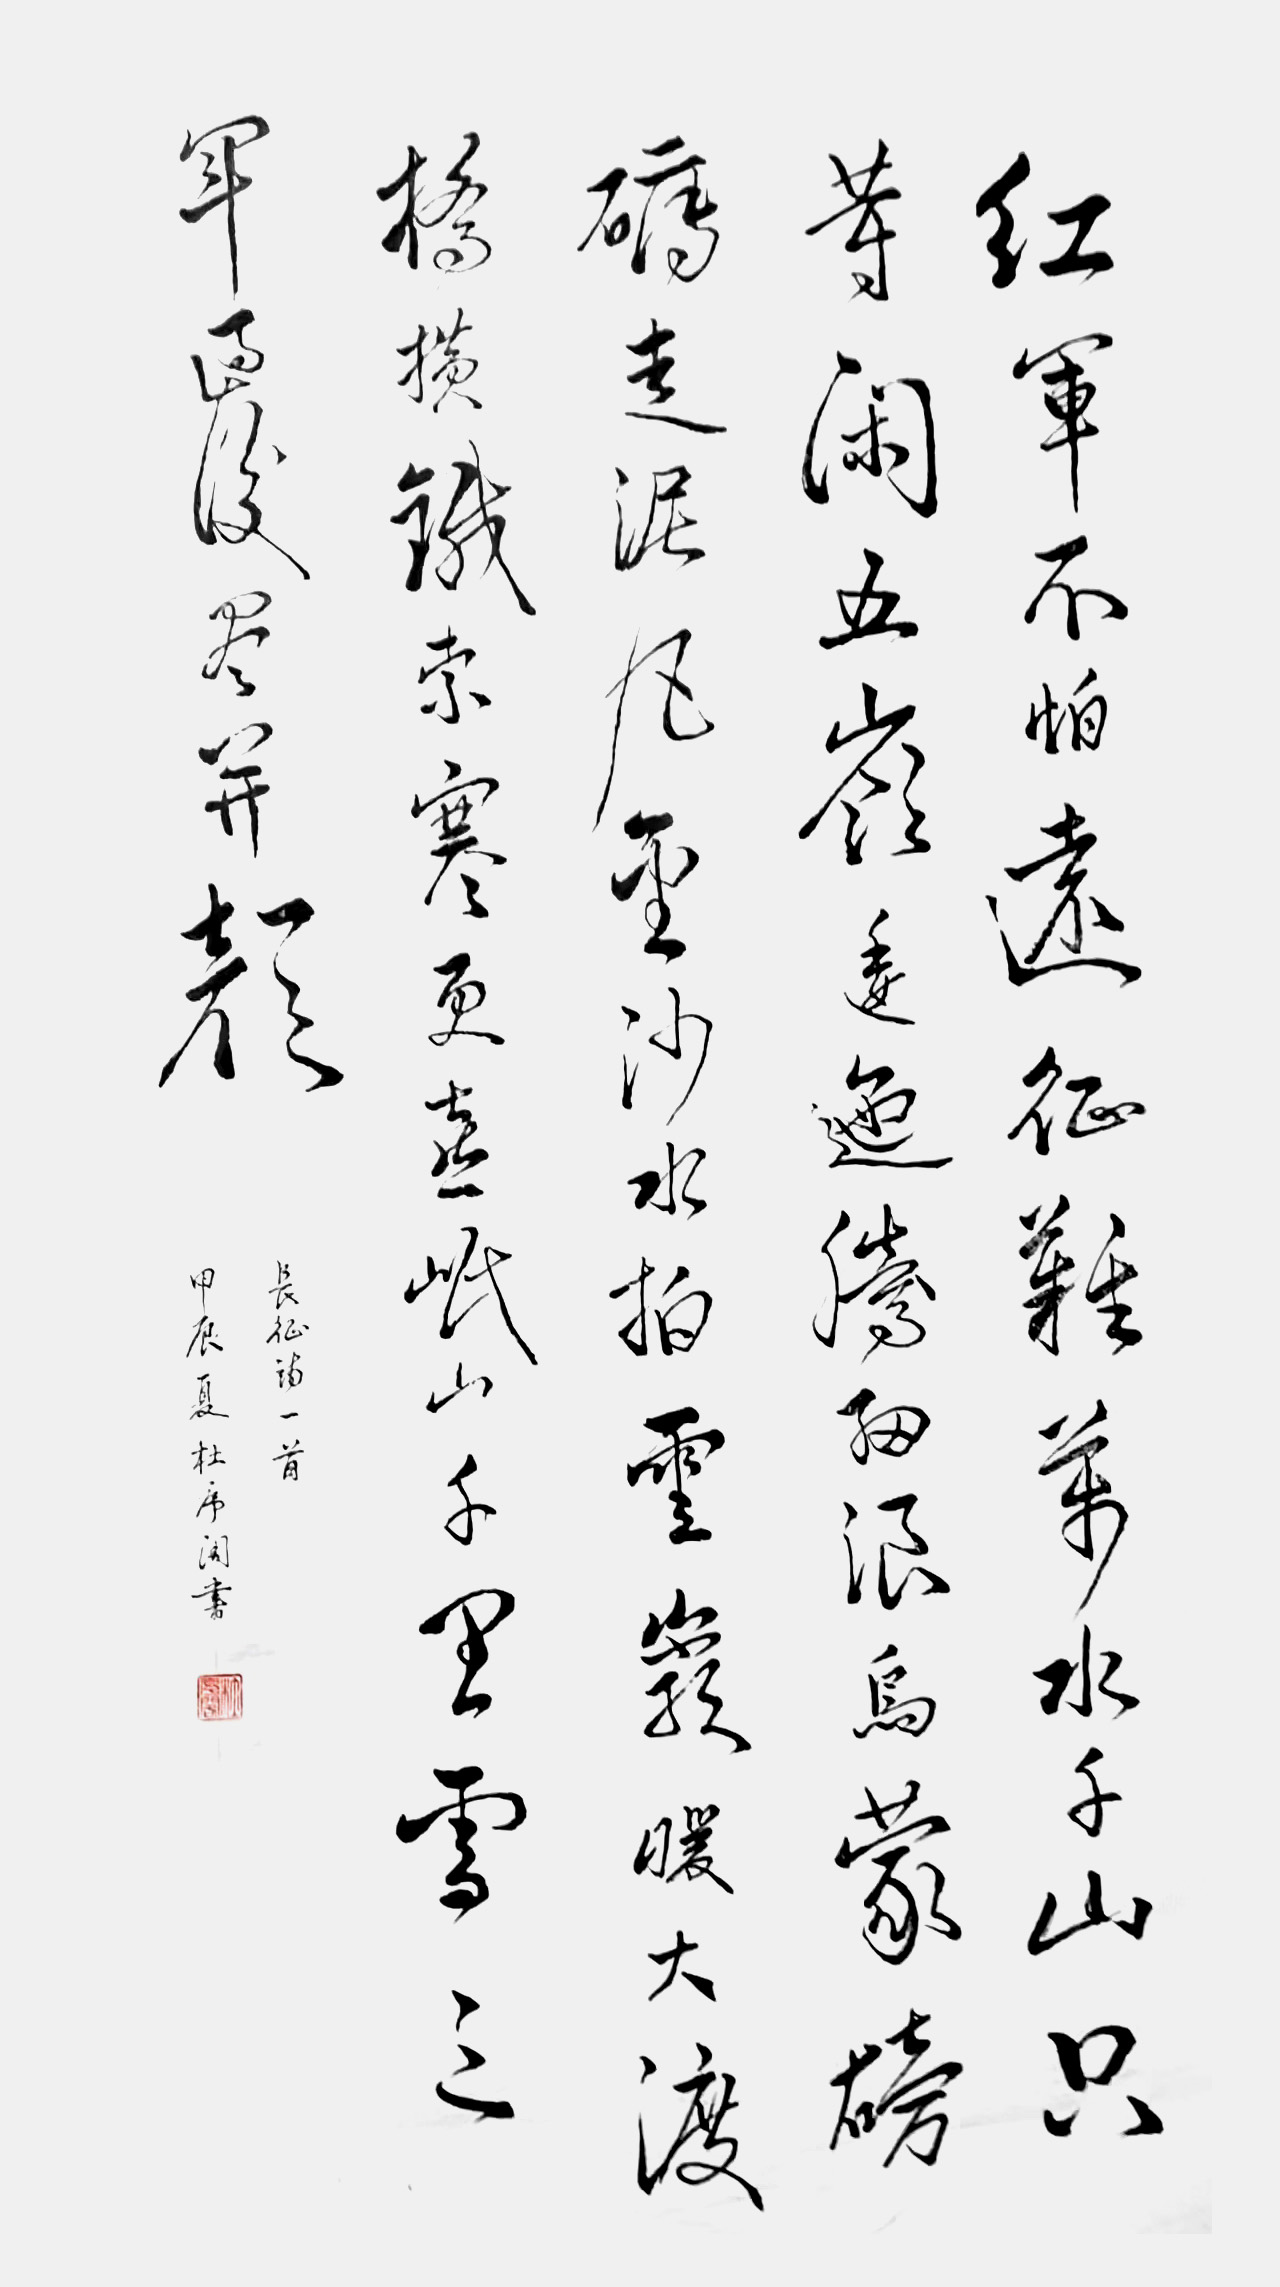 红軍不怕遠征難萬水千山只
等闲五嶺逶迤腾细浪烏蒙磅
礴走泥丸金沙水拍雲崖暖大渡
橋横鐵索寒更喜岷山千里雪三
軍過後尽开颜
長征诗一首
甲辰夏杜
書